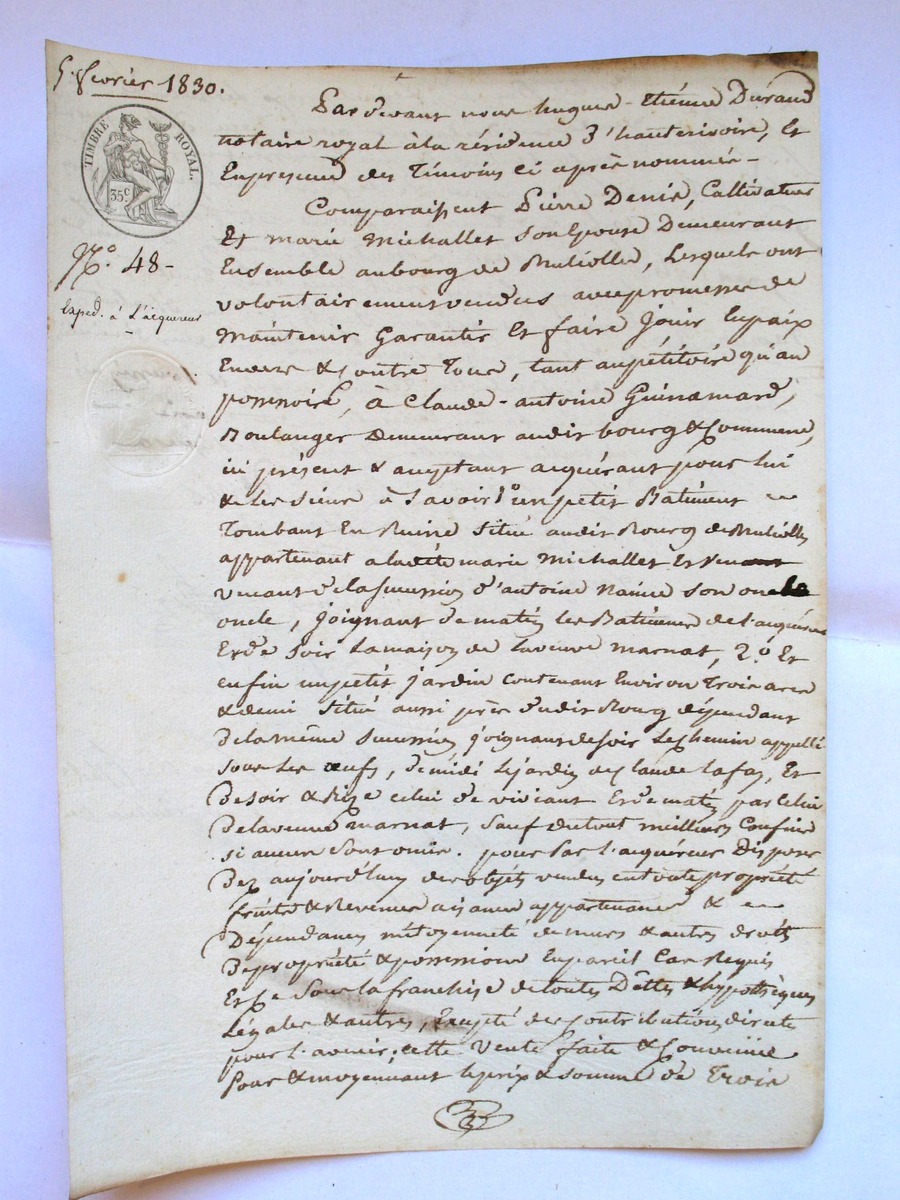 5. fevrier 1830.
TIMBRE ROYAL.
35 C
N.o 48 -
Exped. à l'acquereur
Par devant nous hugues-Etiénne Durand
notaire royal à la résidence d'hauterivoire, Et
En presence des Témoins ci après nommés -
Comparaissent Pierre Denis, Cultivateur
Et marie Michallet son Epouse Demeurant
Ensemble au bourg de , Lesquels ont
volontairement vendus avec promesse de
Maintenir Garantir Et faire Jouir En paix
Envers & Contre Tous, tant au pétitoire qu'au
possessoire, à Claude-antoine Guinamard,
Boulanger Demeurant audit bourg & Commune,
ici présent & acceptant acquérant pour lui
& les siens à Savoir 1o un petit Batiment
Tombant En Ruine Situé audit Bourg de
appartenant a ladite marie Michallet Et
venant de la succession d'antoine Naime son
oncle, joignant de matin les Batimens de l'acquéreur
Et de soir la maison de la veuve marnat, 2.o Et
enfin un petit jardin contenant Environ Trois ares
& demi Situé aussi près dudit Bourg dépendant
de la même succession joignant de soir le chemin appellé
sous les œufs, de midi le jardin de Claude Lafay, Et
de soir & Bize celui de viviant Et de matin par celui
de la veuve marnat, sauf du tout meilleurs Confins
si aucun sont omis. pour par l'acquéreur Disposer
Dez aujourd'huy des objets vendus en toute propriété
fruits & Revenus aisances appartenances &
Dépendances mitoyenneté de murs & autres droits
de propriété & possession En pareil Cas Requis
Et Ce sous la franchise de toutes Dettes & hypothèques
Légales & autres, Excepté des Contributions directes
pour l'avenir, cette Vente faite & Convenue
pour & moyennant le prix & somme de Trois